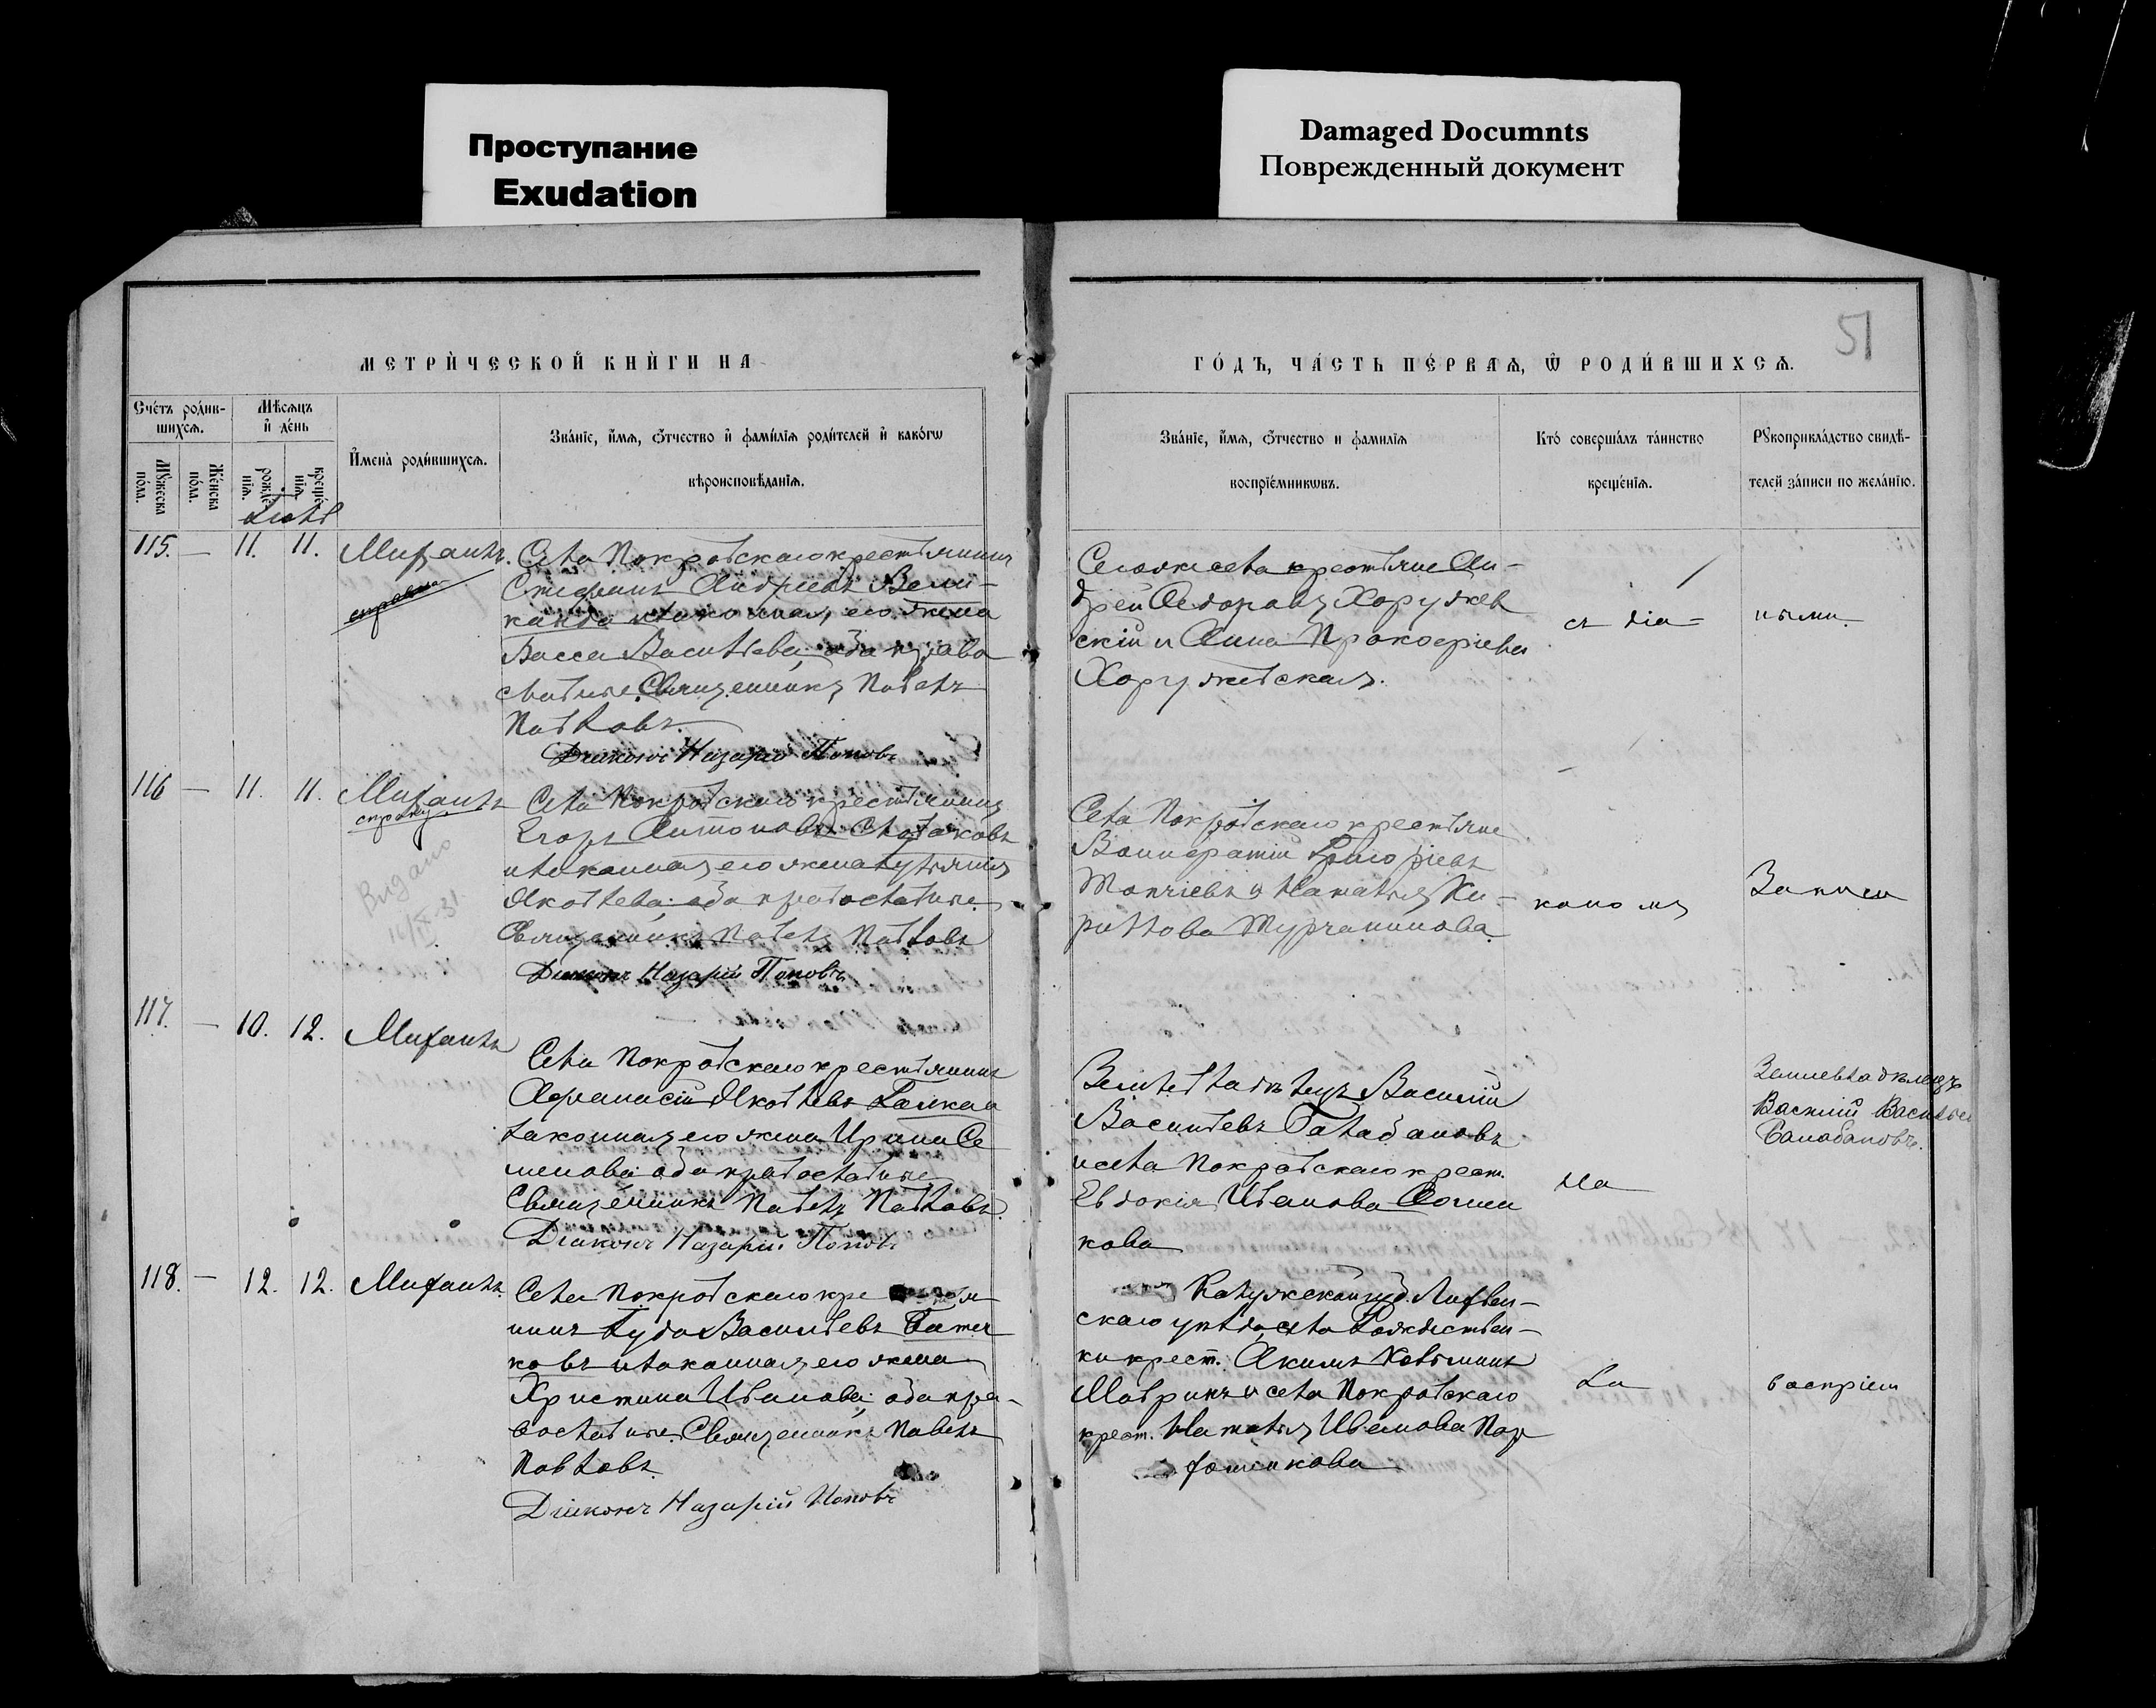 Проступание
Exudation
Damaged Documnts
Поврежденный документ
51
МЕТРИ́ЧЕСКОЙ КНИ́ГИ НА
ГО́ДЪ, ЧА́СТЬ ПЕ́РВАѦ, Ѡ РОДИ́ВШИХСѦ.
Сче́тъ роди́в-
шихсѧ.
Мѣсѧцъ
и҆ де́нь
Мꙋ́жеска
по́ла.
Же́нска
по́ла.
рожде́-
нїѧ.
креще́-
нїѧ.
И҆мена̀ роди́вшихсѧ.
Зва́нїе, и҆́мѧ, ѻ҆́тчество и҆ фамѝлїѧ роди́телей и҆ како́гѡ
вѣроисповѣ́данїѧ.
Зва́нїе, и҆́мѧ, ѻ҆́тчество и фамилїѧ
воспрїе́мникѡвъ.
Кто̀ соверша́лъ та́инство
креще́нїѧ.
Рꙋкоприкла́дство свидѣ́-
телей за́писи по жела́нїю.
115. — 11. 11. Михаилъ.
Села Покровскаго крестьянинъ
Стефанъ Андреевъ Вели-
канда и законная его жена
Васса Васильева, оба право
славные. Священникъ Павелъ
Павловъ.
Діаконъ Назарій Поповъ
Тогоже села крестьяне Ан-
дрей Федоровъ Хоружев
скій и Анна Прокофіева
Хоружевская.
съ діа-
ными
116 — 11. 11. Михаилъ
Села Покровскаго крестьянинъ
Егоръ Антоновъ
и законная его жена
Яковлева, оба православные
Священникъ Павелъ Павловъ
Діаконъ Назарій Поповъ
Видано
Села Покровскаго крестьяне
Григоріевъ
и Наталья Ки-
рилова Турчанинова
кономъ
Записи
117. — 10. 12. Михаилъ
Села Покровскаго крестьянинъ
Афанасій Яковлевъ
законная его жена Ирина Се
менова оба православные
Священникъ Павелъ Павловъ.
Діаконъ Назарій Поповъ
Землевладѣлецъ Василій
Васильевъ Балабановъ
и села Покровскаго крест.
Евдокія Иванова
кова
На
Землевладѣлецъ
Василій Васильев
Балабановъ.
118. — 12. 12. Михаилъ.
Села Покровскаго кре
нинъ Васильевъ
ковъ и законная его жена
Христина Иванова; оба пра-
вославные. Священникъ Павелъ
Павловъ.
Діаконъ Назарій Поповъ
Калужской губ. Лихвин-
скаго уѣзда, села Рождествен-
ки крест. Акимъ
Мавринъ и села Покровскаго
крест. Наталья Иванова Пар
фошикова
За
воспріем